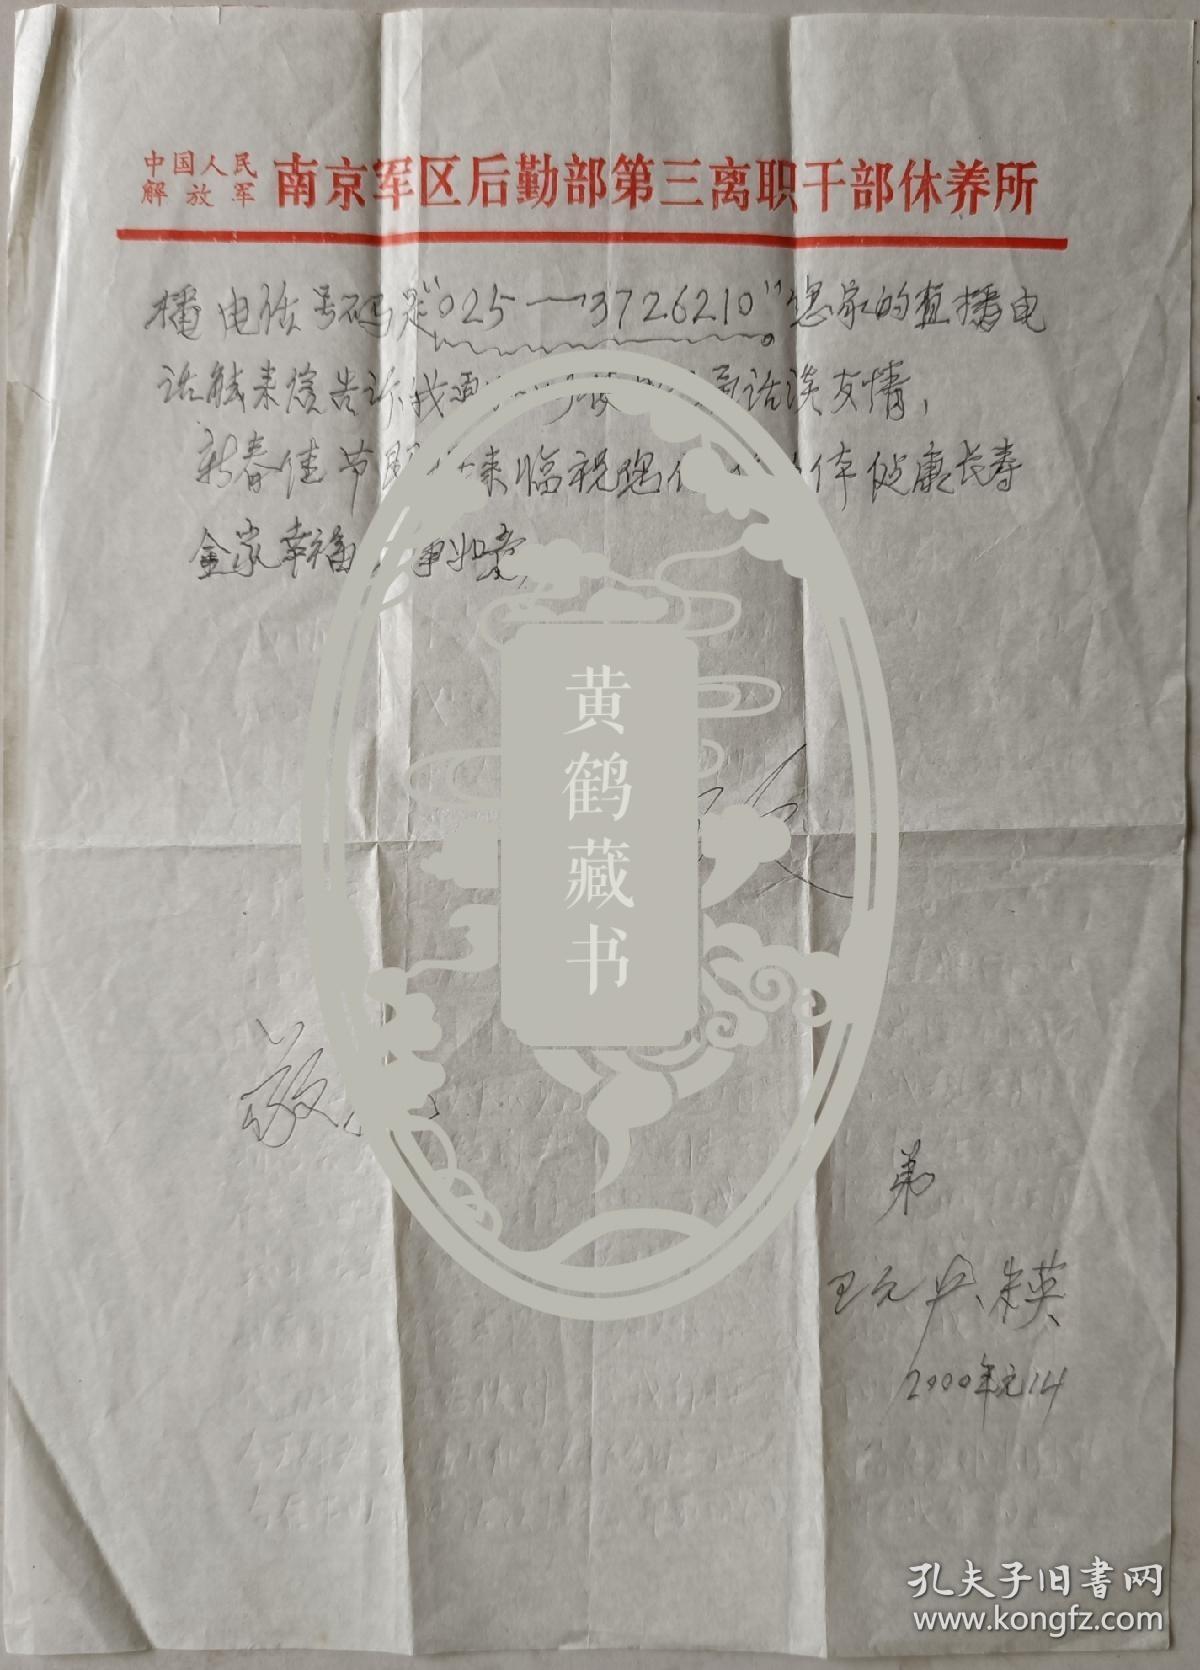 中国人民
解放军
南京军区后勤部第三离职干部休养所
播电话号码是“025—3726210”您家的直播电
话能来信告诉我 通话谈友情，
新春佳节 来临祝 健康长寿
全家幸福 事如意
黄鹤藏书
敬
弟
朱英
2000年元14
孔夫子旧書网
www.kongfz.com